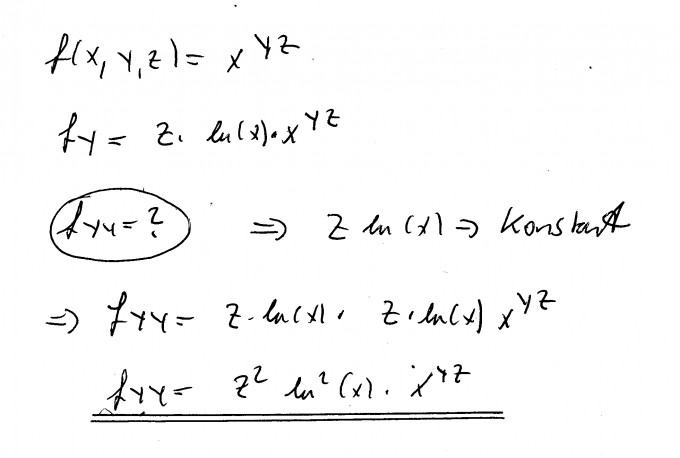 f(x, y, z) = x^{yz}
f_y = z · ln(x) · x^{yz}
f_{yy} = ? ⇒ z ln(x) ⇒ Konstant
⇒ f_{yy} = z · ln(x) · z · ln(x) x^{yz}
f_{yy} = z² ln²(x) · x^{yz}